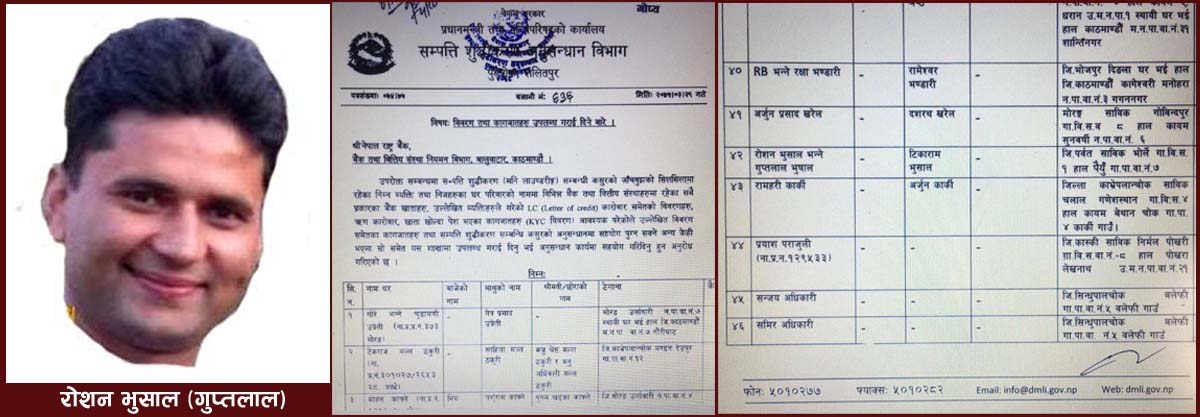 रोशन भुसाल (गुप्तलाल)
गोप्य
नेपाल सरकार
प्रधानमन्त्री तथा मन्त्रिपरिषद्को कार्यालय
सम्पत्ति शुद्धीकरण अनुसन्धान विभाग
ललितपुर
पत्रसंख्याः
चलानी नं: ६३६
मितिः
विषयः विवरण तथा कागजातहरु उपलब्ध गराई दिने बारे ।
श्री नेपाल राष्ट्र बैंक,
बैंक तथा वित्तिय संस्था नियमन विभाग, बालुवाटार, काठमाण्डौं ।
उपरोक्त सम्बन्धमा सम्पत्ति शुद्धीकरण (मनि लाउण्डरीङ्ग) सम्बन्धी कसुरको जाँचबुझको सिलसिलामा
रहेका निम्न व्यक्ति तथा निजहरुका घर परिवारको नाममा विभिन्न बैंक तथा वित्तीय संस्थाहरुमा रहेका सबै
प्रकारका बैंक खाताहरु, उल्लेखित व्यक्तिहरुले गरेको LC (Letter of credit) कारोबार समेतको विवरणहरु,
ऋण कारोबार, खाता खोल्दा पेश भएका कागजातहरु (KYC विवरण) आवश्यक परेकोले उल्लेखित विवरण
समेतका कागजातहरु तथा सम्पत्ति शुद्धीकरण सम्बन्धि कसुरको अनुसन्धानमा सहयोग पुग्न सक्ने अन्य केही
भएमा सो समेत यस शाखामा उपलब्ध गराई दिनु भई अनुसन्धान कार्यमा सहयोग गरिदिनु हुन अनुरोध
गरिएको छ ।
निम्नः
सि.न. नाम थर बाजेको नाम बाबुको नाम श्रीमती/छोराको नाम ठेगाना
१ गोरे भन्ने चुडामणी उप्रेती (ना.प्र.प.नं.३०३ मोरङ) - नेत्र प्रसाद उप्रेती - मोरङ उर्लाबारी न.पा.वा.नं.७ स्थायी घर भई हाल जि.काठमाण्डौं म.न.पा. वा.नं.७ गौरीघाट
२ टेकराज मल्ल ठकुरी - साहिला मल्ल ठकुरी जि.काभ्रेपलाञ्चोक मण्डन देउपुर गा.पा.वा.नं.१२
३ मोहन काफ्ले भिम
धरान उ.म.न.पा.१ स्थायी घर भई हाल काठमाण्डौं म.न.पा.वा.नं.३१ शान्तिनगर
४० RB भन्ने रक्षा भण्डारी - रामेश्वर भण्डारी - जि.भोजपुर दिङला घर भई हाल जि.काठमाण्डौं कागेश्वरी मनोहरा न.पा.वा.नं.३ गगननगर
४१ अर्जुन प्रसाद खरेल - दशरथ खरेल - मोरङ साविक गोविन्दपुर गा.वि.स.व ८ हाल कायम सुनवर्षी न.पा.वा.नं. ६
४२ रोशन भुसाल भन्ने गुप्तलाल भुषाल - टिकाराम भुसाल - जि.पर्वत साविक भोर्ले गा.वि.स. १ हाल पैयुँ गा.पा.वा.नं.७
४३ रामहरी कार्की - अर्जुन कार्की - जिल्ला काभ्रेपलान्चोक साविक चलाल गणेशस्थान गा.वि.स.४ हाल कायम बेथान चोक गा.पा. ४ कार्की गाउँ ।
४४ प्रयाश पराजुली (ना.प्र.न.१२९५३३) - - - जि.कास्की साविक निर्मल पोखरी गा.वि.स.वा.नं.-८ हाल पोखरा लेखनाथ उ.म.न.पा.वा.नं.२१
४५ सन्जय अधिकारी - - - जि.सिन्धुपालचोक बलेफी गा.पा.वा.नं.५ बलेफी गाउँ
४६ समिर अधिकारी - - - जि.सिन्धुपालचोक बलेफी गा.पा.वा. नं.५ बलेफी गाउँ
फोनः ५०१०२७७ फ्याक्सः ५०१०२८२ Email: info@dmli.gov.np Web: dmli.gov.np